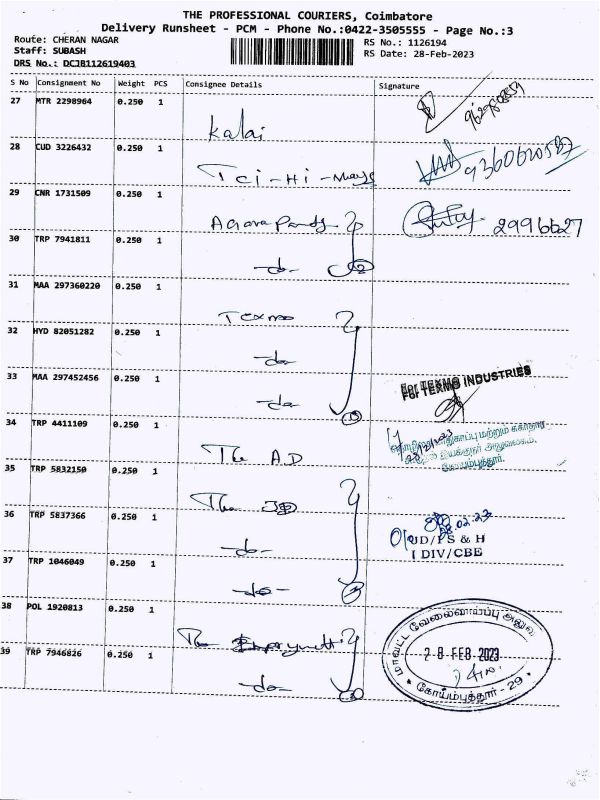 THE PROFESSIONAL COURIERS, Coimbatore
Delivery Runsheet - PCM - Phone No.:0422-3505555 - Page No.:3
Route: CHERAN NAGAR
RS No.: 1126194
Staff: SUBASH
RS Date: 28-Feb-2023
DRS No.: DCJB112619403
S No Consignment No Weight PCS Consignee Details Signature
27 MTR 2298964 0.250 1
Kalai
28 CUD 3226432 0.250 1
9360620587
29 CNR 1731509 0.250 1
2996627
30 TRP 7941811 0.250 1
-do-
31 MAA 297360220 0.250 1
Texmo
32 HYD 82051282 0.250 1
-do-
33 MAA 297452456 0.250 1
-do-
For TEXMO INDUSTRIES
34 TRP 4411109 0.250 1
28/2/2023
The AD
கோயம்புத்தூர்.
35 TRP 5832150 0.250 1
The JD
36 TRP 5837366 0.250 1
28.02.23
-do-
O/o JD/IS & H
I DIV/CBE
37 TRP 1046049 0.250 1
-do-
38 POL 1920813 0.250 1
The
மாவட்ட வேலைவாய்ப்பு அலுவ
28 FEB 2023
39 TRP 7946826 0.250 1
-do-
கோயம்புத்தூர் - 29